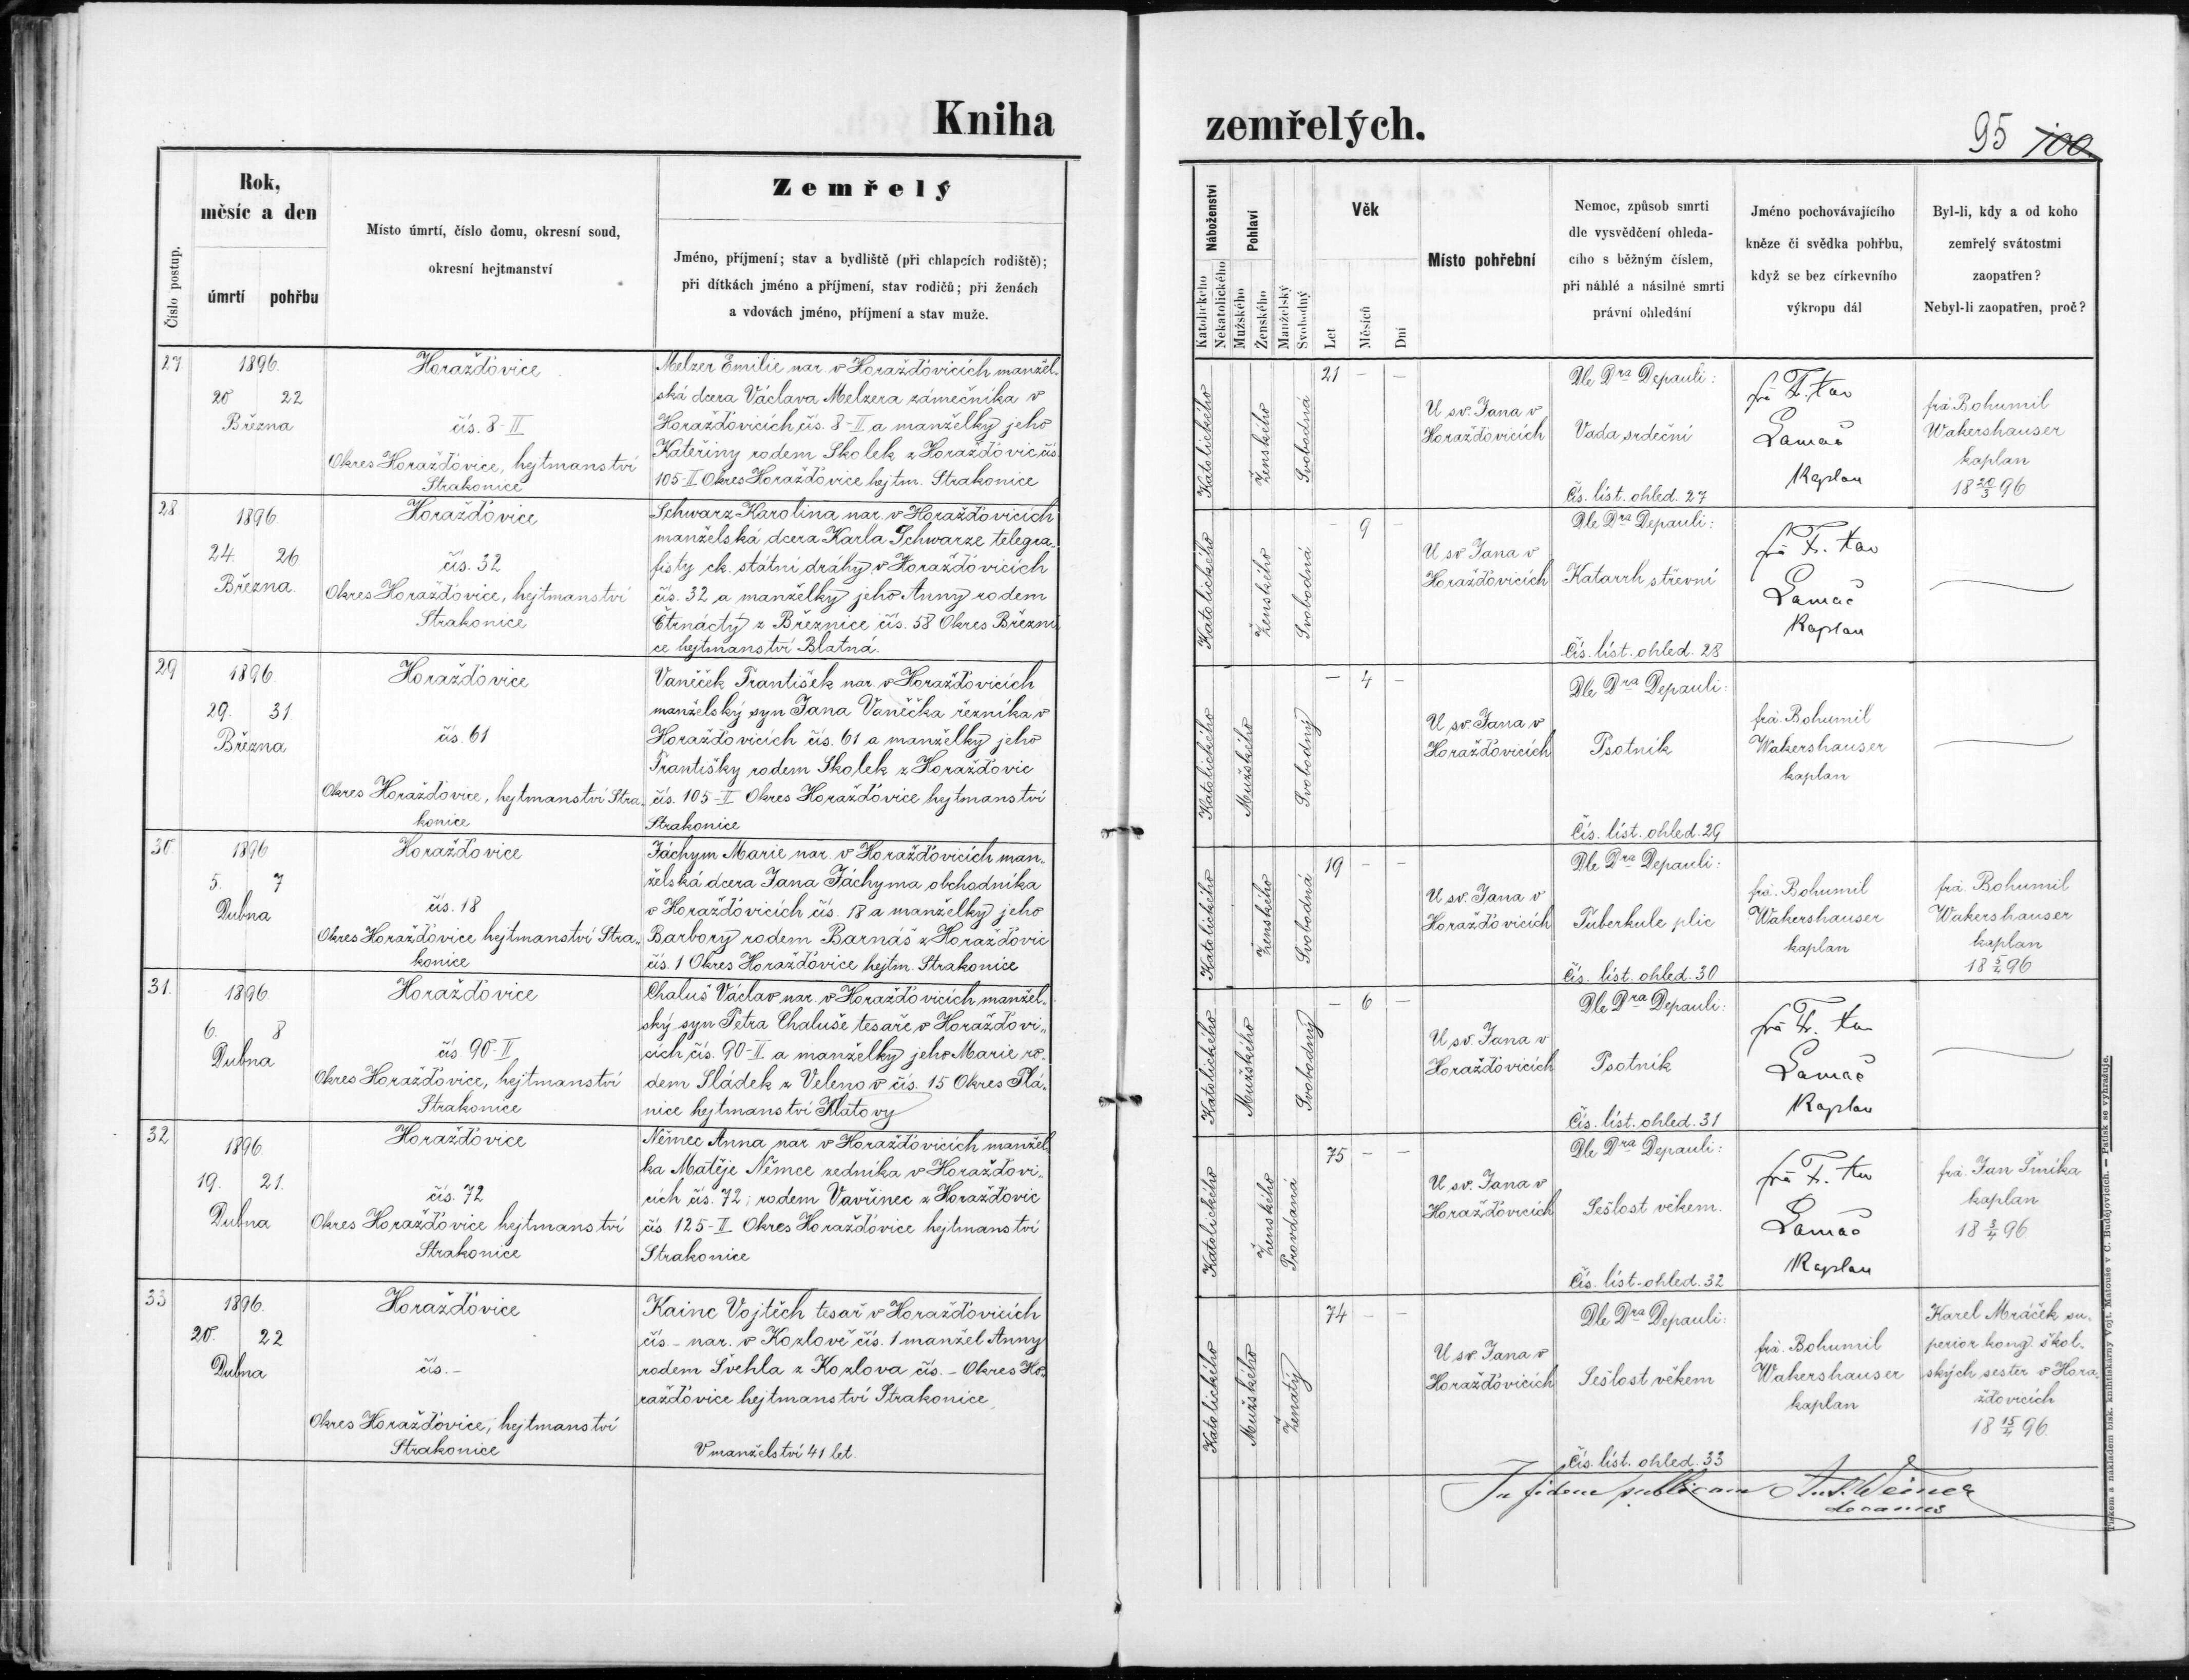 Kniha
Číslo postup.
Rok,
měsíc a den
úmrtí pohřbu
Místo úmrtí, číslo domu, okresní soud,
okresní hejtmanství
Zemřelý
Jméno, příjmení; stav a bydliště (při chlapcích rodiště);
při dítkách jméno a příjmení, stav rodičů; při ženách
a vdovách jméno, příjmení a stav muže.
27
1896.
20 22
Března
Horažďovice
čís. 8-II
Okres Horažďovice, hejtmanství
Strakonice
Melzer Emilie nar. v Horažďovicích manžel-
ská dcera Václava Melzera zámečníka v
Horažďovicích čís. 8-II a manželky jeho
Kateřiny rodem Skolek z Horažďovic čís.
105-II Okres Horažďovice hejtm. Strakonice
28
1896.
24. 26
Března.
Horažďovice
čís. 32
Okres Horažďovice, hejtmanství
Strakonice
Schwarz Karolina nar. v Horažďovicích
manželská dcera Karla Schwarze telegra-
fisty ck. státní dráhy v Horažďovicích
čís. 32 a manželky jeho Anny rodem
Čtrnáctý z Březnice čís. 58 Okres Březni
ce hejtmanství Blatná.
29
1896.
29. 31.
Března
Horažďovice
čís. 61
Okres Horažďovice, hejtmanství Stra-
konice
Vaněček František nar. v Horažďovicích
manželský syn Jana Vaněčka řezníka v
Horažďovicích čís. 61 a manželky jeho
Františky rodem Skolek z Horažďovic
čís. 105-II Okres Horažďovice hejtmanství
Strakonice
30
1896
5. 7
Dubna
Horažďovice
čís. 18
Okres Horažďovice hejtmanství Stra-
konice
Jáchym Marie nar. v Horažďovicích man-
želská dcera Jana Jáchyma obchodníka
v Horažďovicích čís. 18 a manželky jeho
Barbory rodem Barnáš z Horažďovic
čís. 1 Okres Horažďovice hejtm. Strakonice
31.
1896
6. 8
Dubna
Horažďovice
čís. 90-II
Okres Horažďovice, hejtmanství
Strakonice
Chaluš Václav nar. v Horažďovicích manžel-
ský syn Petra Chaluše tesaře v Horažďovi-
cích čís. 90-II a manželky jeho Marie ro-
dem Sládek z Velenov čís. 15 Okres Plá-
nice hejtmanství Klatovy
32
1896.
19. 21.
Dubna
Horažďovice
čís. 72
Okres Horažďovice hejtmanství
Strakonice
Němec Anna nar. v Horažďovicích manžel-
ka Matěje Němce zedníka v Horažďovi-
cích čís. 72; rodem Vavřinec z Horažďovic
čís. 125-II Okres Horažďovice hejtmanství
Strakonice
33
1896.
20. 22
Dubna
Horažďovice
čís. -
Okres Horažďovice, hejtmanství
Strakonice
Kainc Vojtěch tesař v Horažďovicích
čís. - nar. v Kozlově čís. 1 manžel Anny
rodem Švehla z Kozlova čís. - Okres Ho-
ražďovice hejtmanství Strakonice
V manželství 41 let.
zemřelých.
95 100
Náboženství
Katolického
Nekatolického
Pohlaví
Mužského
Ženského
Manželský
Svobodný
Věk
Let
Měsíců
Dní
Místo pohřební
Nemoc, způsob smrti
dle vysvědčení ohleda-
cího s běžným číslem,
při náhlé a násilné smrti
právní ohledání
Jméno pochovávajícího
kněze či svědka pohřbu,
když se bez církevního
výkropu dál
Byl-li, kdy a od koho
zemřelý svátostmi
zaopatřen?
Nebyl-li zaopatřen, proč?
Katolického
Ženského
Svobodná
21 - -
U sv. Jana v
Horažďovicích
Dle Dra Depauli:
Vada srdeční
Čís. list. ohled. 27
Lamač
Kaplan
frá Bohumil
Wakershauser
kaplan
18 20/3 96
Katolického
Ženského
Svobodná
- 9 -
U sv Jana v
Horažďovicích
Dle Dra Depauli:
Katarrh střevní
Čís. list. ohled. 28
Lamač
Kaplan
Katolického
Mužského
Svobodný
- 4 -
U sv. Jana v
Horažďovicích
Dle Dra Depauli:
Psotník
Čís. list. ohled. 29
frá. Bohumil
Wakershauser
kaplan
Katolického
Ženského
Svobodná
19 - -
U sv. Jana v
Horažďovicích
Dle Dra Depauli:
Tuberkule plic
Čís. list. ohled. 30
frá. Bohumil
Wakershauser
kaplan
frá. Bohumil
Wakershauser
kaplan
18 5/4 96
Katolického
Mužského
Svobodný
- 6 -
U sv. Jana v
Horažďovicích
Dle Dra Depauli:
Psotník
Čís. list. ohled. 31
Lamač
Kaplan
Katolického
Ženského
Provdaná
75 - -
U sv. Jana v
Horažďovicích
Dle Dra Depauli:
Sešlost věkem.
Čís. list. ohled. 32
Lamač
Kaplan
frá. Jan
kaplan
18 3/4 96.
Katolického
Mužského
Ženatý
74 - -
U sv. Jana v
Horažďovicích
Dle Dra Depauli:
Sešlost věkem
Čís. list. ohled. 33
frá. Bohumil
Wakershauser
kaplan
Karel Mráček su-
perior kong. škol-
ských sester v Hora-
žďovicích
18 15/4 96.
In fidem publicam Ant. Weiner
decanus
Tiskem a nákladem bisk. knihtiskárny Vojt. Matouše v Č. Budějovicích. — Patisk se vyhražuje.